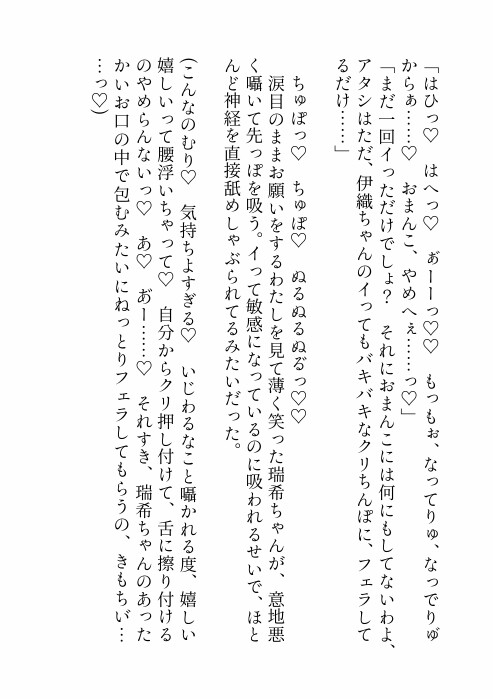 「はひっ♡　はへっ♡　あ゛ーーっ♡♡　もっもぉ、なってりゅ、なっでりゅ
からぁ……♡　おまんこ、やめへぇ……っ♡」
「まだ一回イっただけでしょ？　それにおまんこには何にもしてないわよ、
アタシはただ、伊織ちゃんのイってもバキバキなクリちんぽに、フェラして
るだけ……」
ちゅぽっ♡　ちゅぽ♡　ぬるぬるぬる゛っ♡♡
涙目のままお願いをするわたしを見て薄く笑った瑞希ちゃんが、意地悪
く囁いて先っぽを吸う。イって敏感になっているのに吸われるせいで、ほと
んど神経を直接舐めしゃぶられてるみたいだった。
(こんなのむり♡　気持ちよすぎる♡　いじわるなこと囁かれる度、嬉しい
嬉しいって腰浮いちゃって♡　自分からクリ押し付けて、舌に擦り付ける
のやめらんないっ♡　あ♡　あ゛ー……♡　それすき、瑞希ちゃんのあった
かいお口の中で包むみたいにねっとりフェラしてもらうの、きもちぃ゛…
…っ♡)